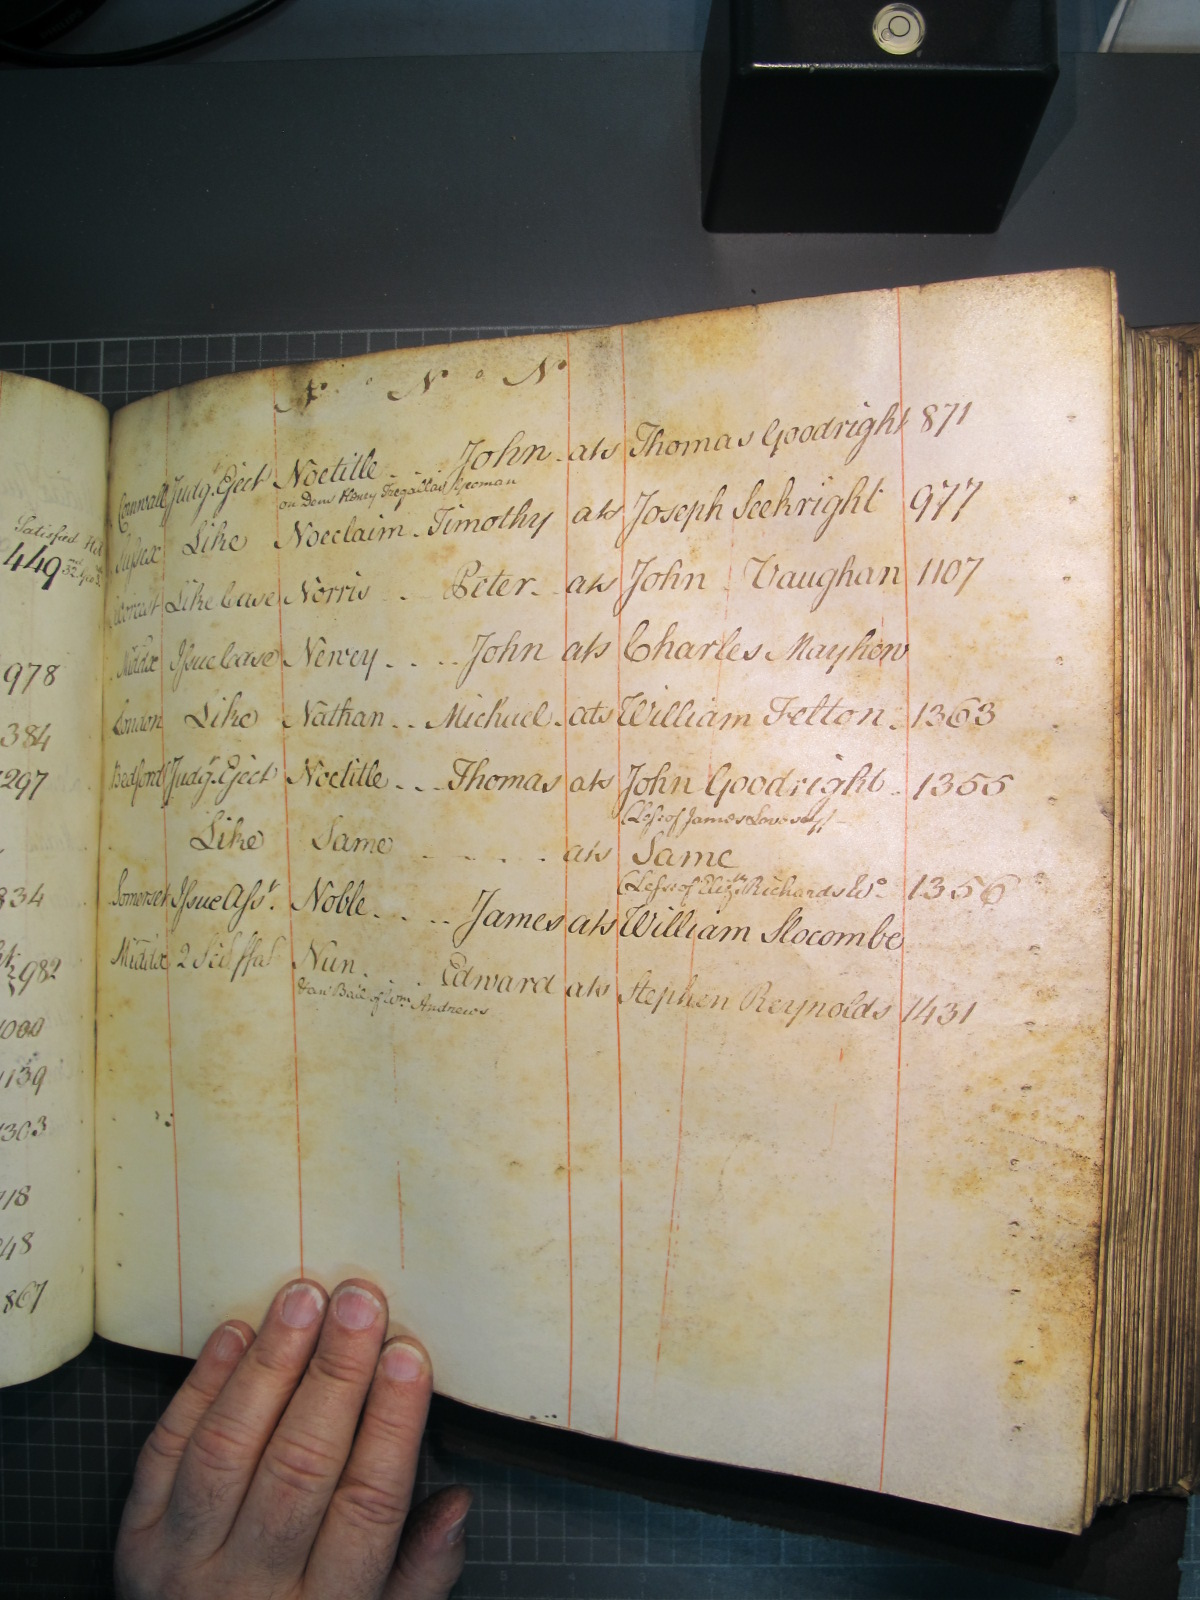 Satisfied
449
978
384
297
334
982
1000
1139
1303
718
248
867
N N N
Cornwall Judg. Eject Noctille John ats Thomas Goodright 871
on Dem Henry Tregallas Yeoman
Sussex Like Nocclaim Timothy ats Joseph Seekright 977
Like Case Norris Peter ats John Vaughan 1107
Middx Issue Case Nervey John ats Charles Mayhew
London Like Nathan Michael ats William Felton 1363
Bedford Judg. Eject Noctille Thomas ats John Goodright 1355
(Less of James
Like Same ats Same
(Less of Eliz:th Richards Wo 1356
Somerset Issue Asst. Noble James ats William Slocombe
Middx 2 Sci ffas Nun Edward ats Stephen Reynolds 1431
Bail of Wm Andrews